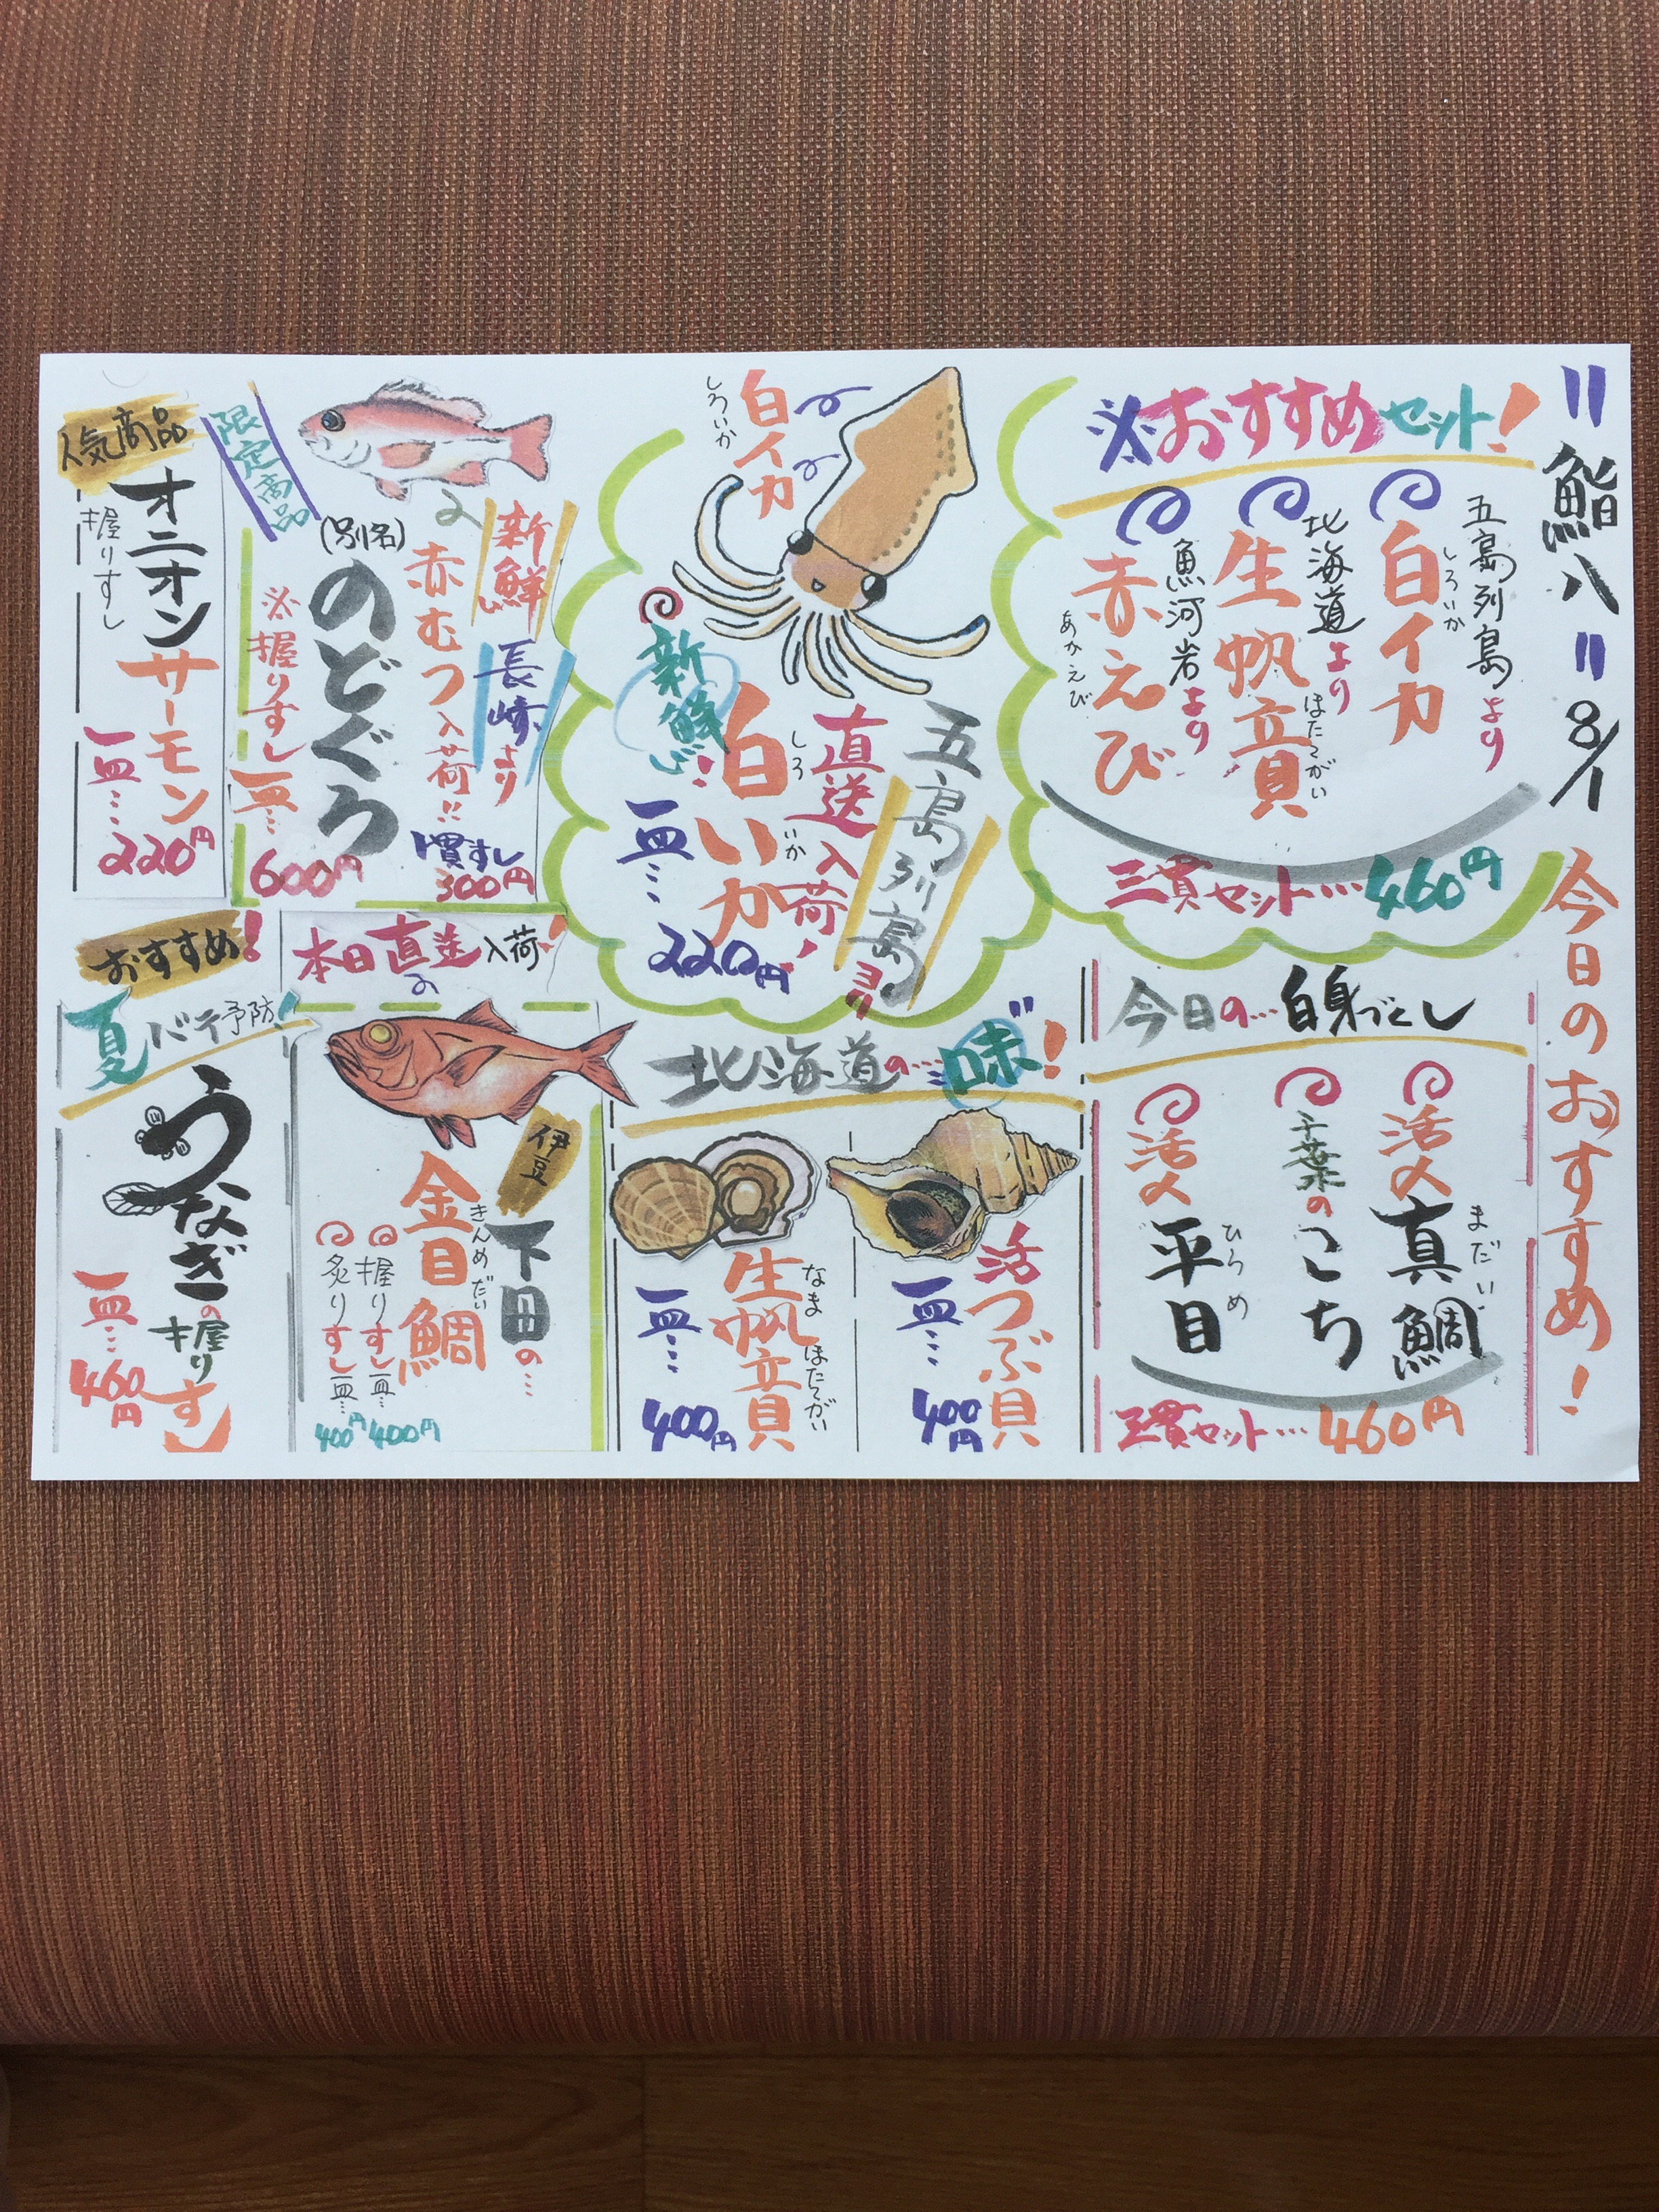 "鮨八" 8/1
今日のおすすめ!
※おすすめセット!
五島列島より
白イカ
しろいか
北海道より
生帆立貝
ほたてがい
魚河岸より
赤えび
あかえび
三貫セット…460円
今日の…白身づくし
活〆
真鯛
まだい
千葉の
こち
活〆
平目
ひらめ
三貫セット…460円
白イカ
しろいか
五島列島ヨリ
直送入荷!
白いか
しろ
いか
新鮮!
一皿…
220円
北海道の…"味"!
活つぶ貝
一皿…
400円
生帆立貝
なまほたてがい
一皿…
400円
限定商品
新鮮
長崎より
赤むつ入荷!!
(別名)
のどぐろ
1貫すし
300円
※握りすし
一皿…
600円
本日直送入荷!
伊豆
下田の…
金目鯛
きんめだい
握りすし一皿…
400円
炙りすし一皿…
400円
人気商品
オニオンサーモン
握りすし
一皿…
220円
おすすめ!
夏バテ予防!
うなぎの握りすし
一皿…
460円